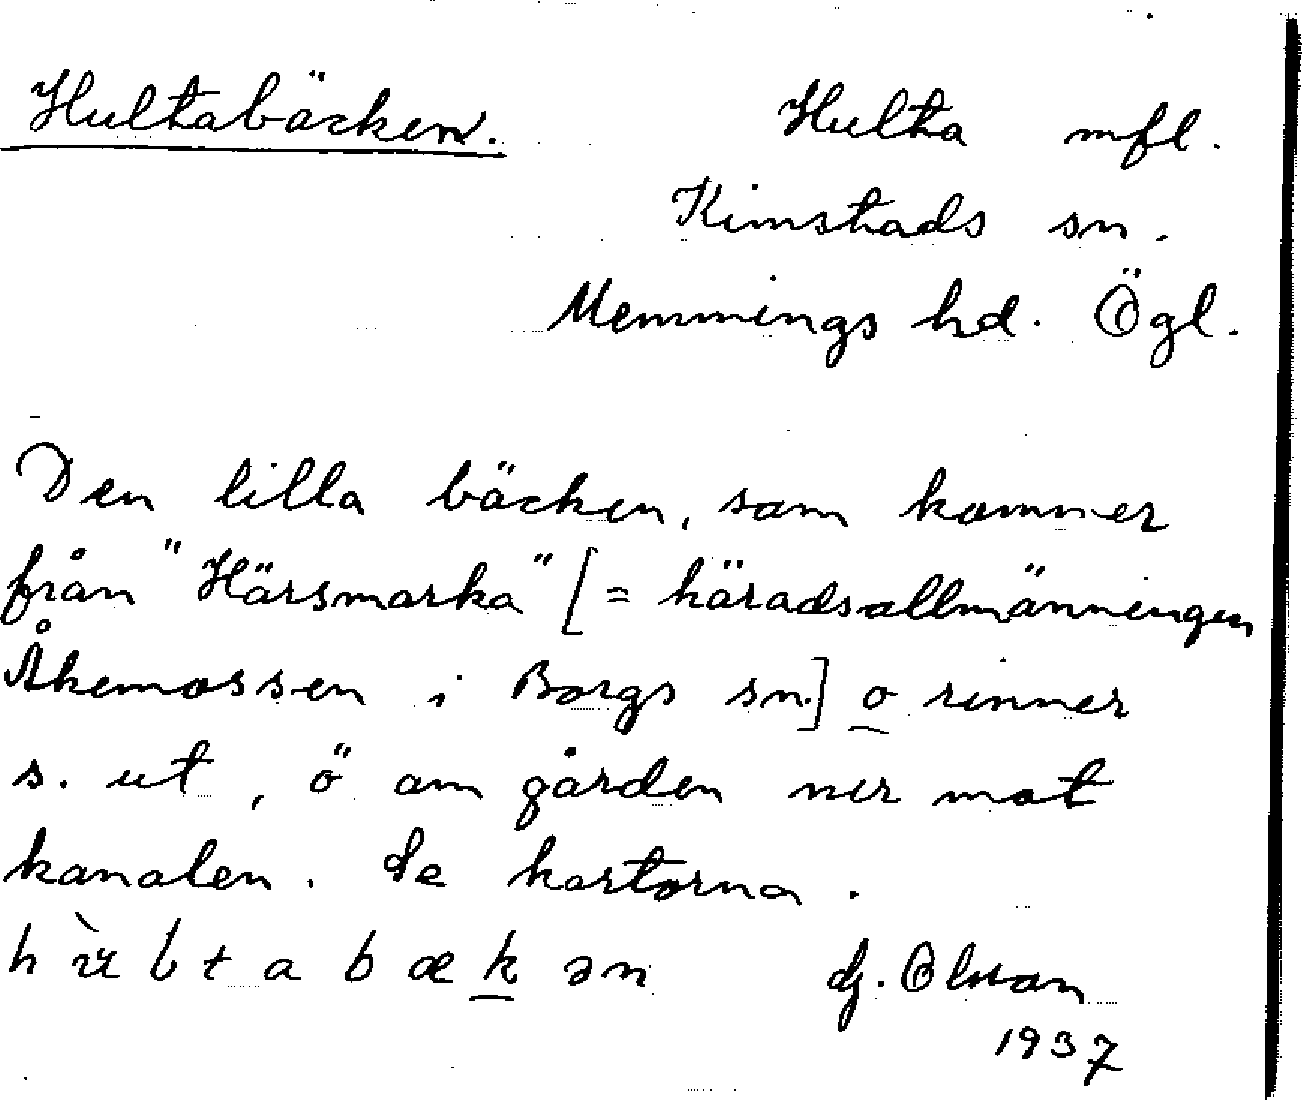 Hultabäcken. Hulta mfl.
Kimstads sn.
Memmings hd. Ögl.
Den lilla bäcken, som kommer
från "Härsmarka" [= häradsallmänningen
Åkemossen i Borgs sn.] o rinner
s. ut, ö om gården ner mot
kanalen. Se kartorna.
G. Olsson
1937